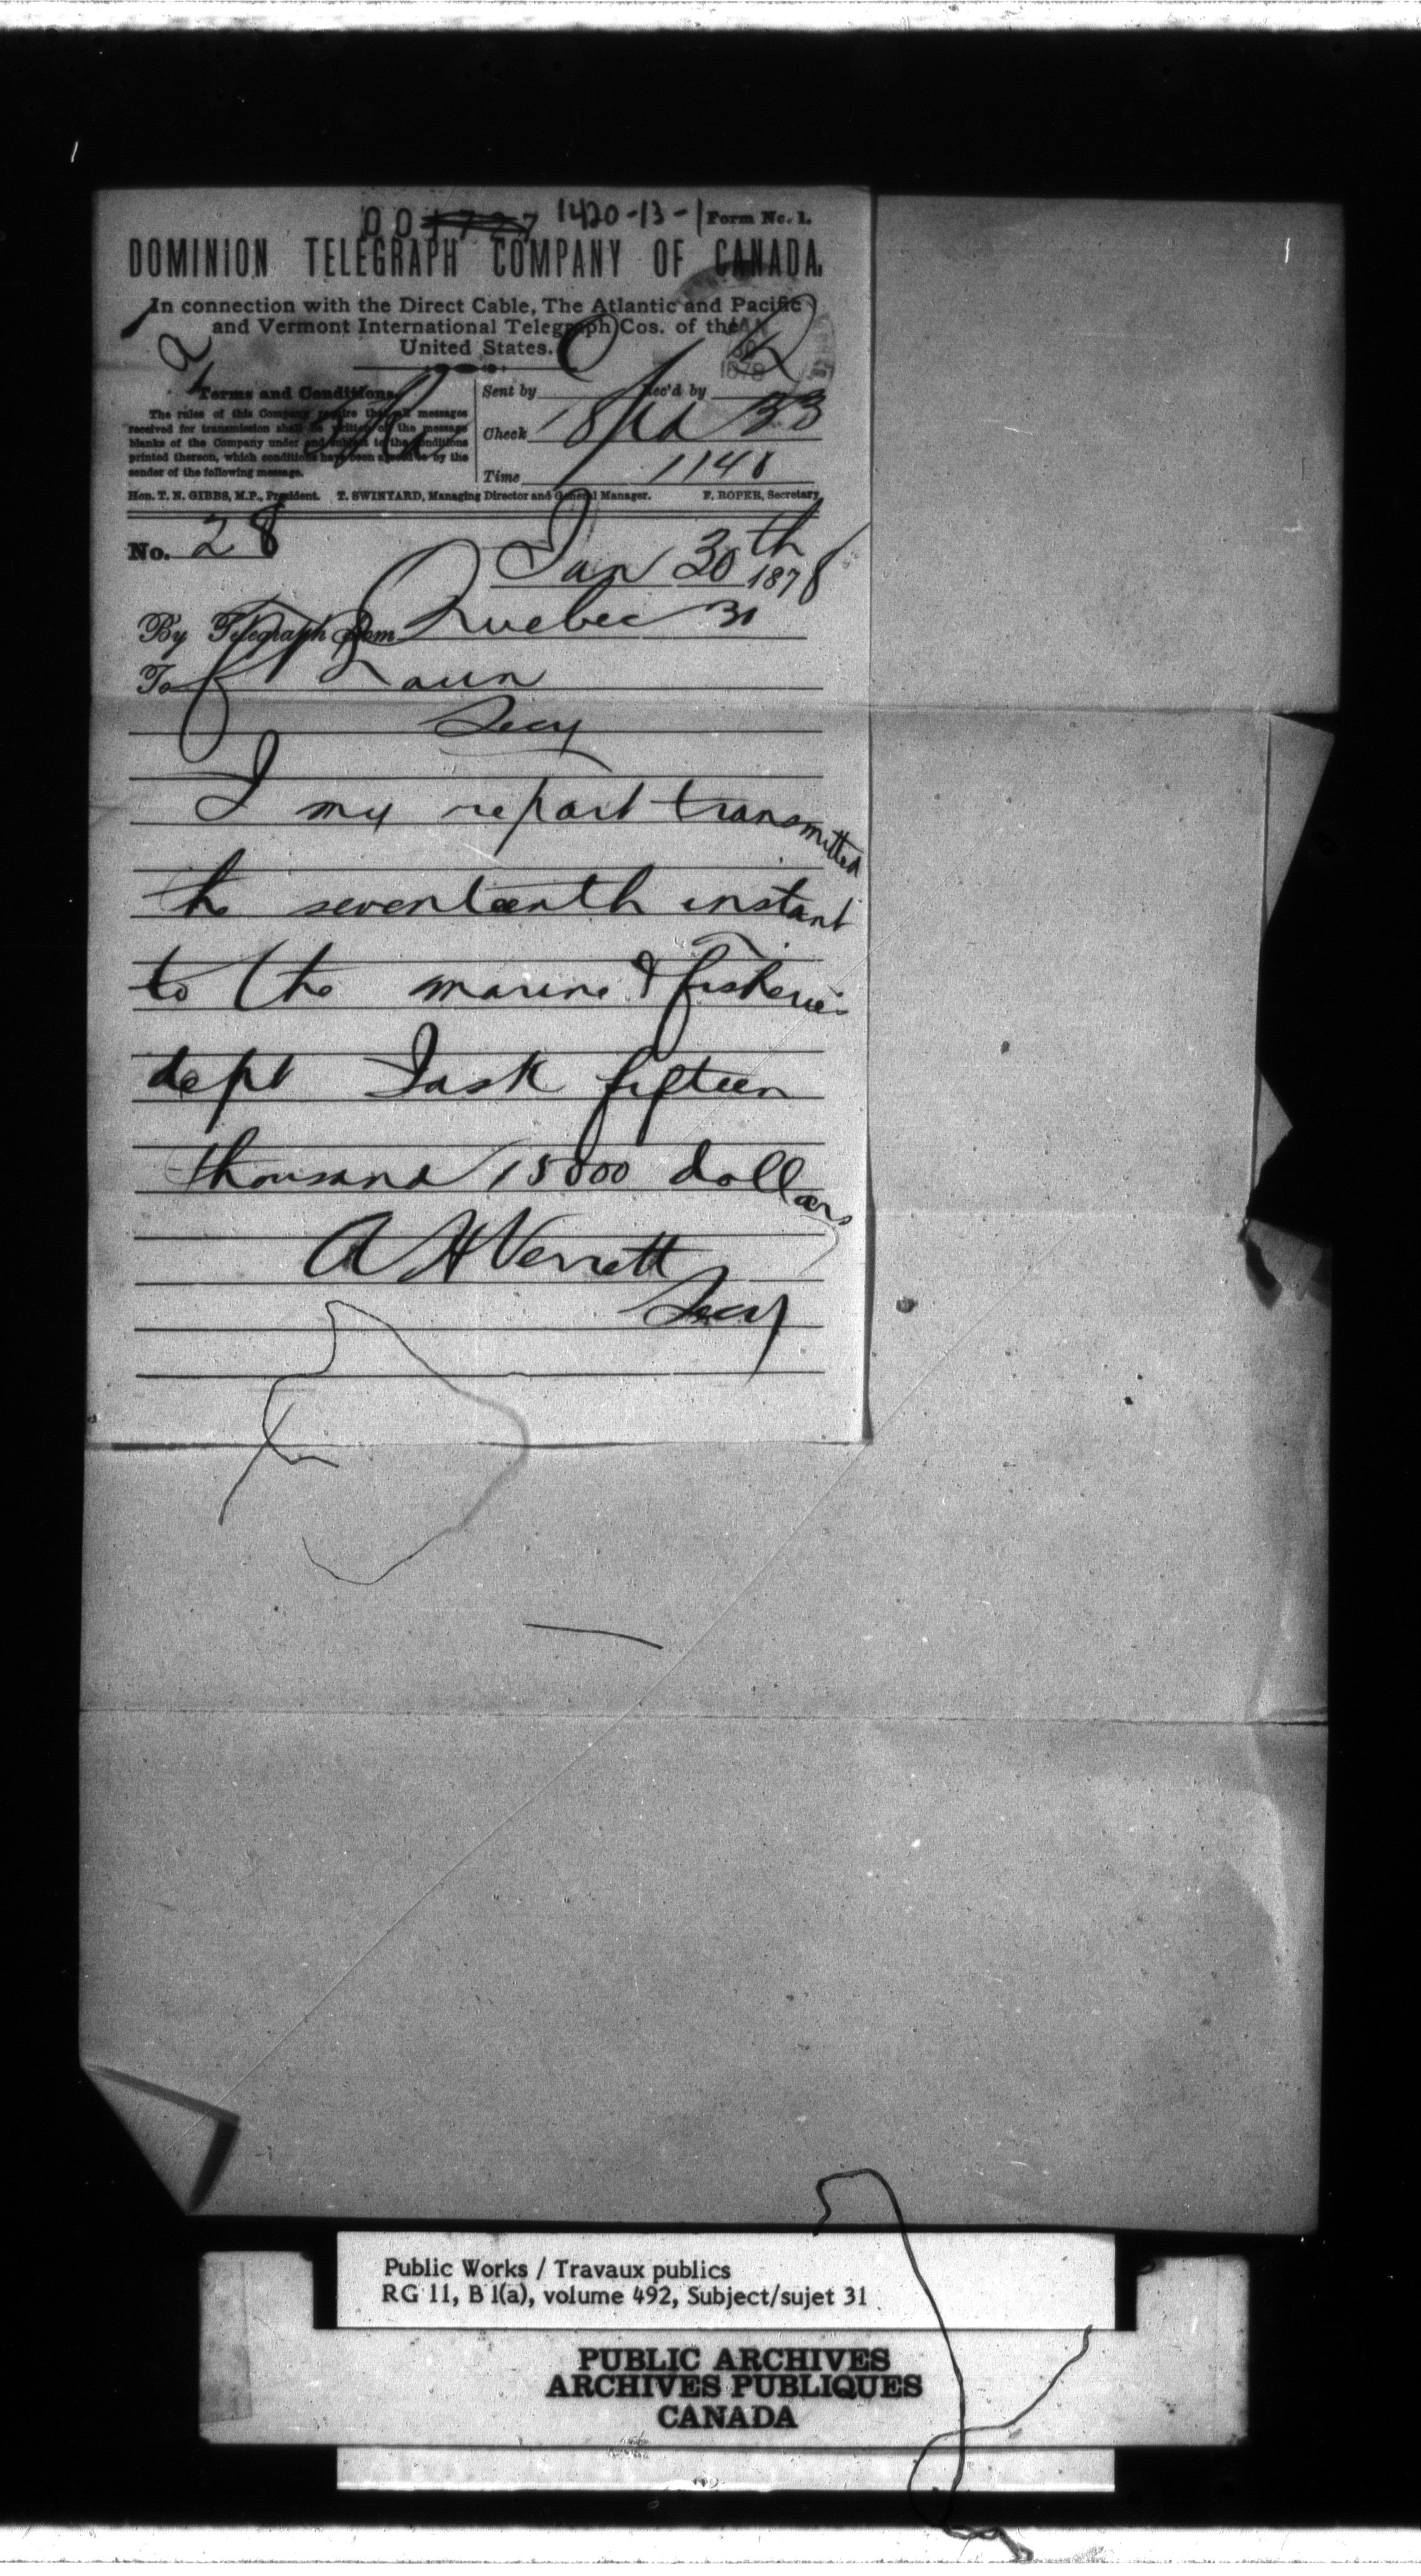 001727 1420-13-1 Form No. 1.
DOMINION TELEGRAPH COMPANY OF CANADA.
In connection with the Direct Cable, The Atlantic and Pacific
and Vermont International Telegraph Cos. of the
United States.
JAN
30
1878
Terms and Conditions.
The rules of this Company require that all messages
received for transmission shall be written on the message
blanks of the Company under and subject to the conditions
printed thereon, which conditions have been agreed to by the
sender of the following message.
Sent by Rec'd by
Check 18 Pd 33
Time 1148
Hon. T. N. GIBBS, M.P., President. T. SWINYARD, Managing Director and General Manager. F. ROPER, Secretary
No. 28
Jan 30th 1878
By Telegraph from Quebec 30
To Braun
Secy
I my report transmitted
the seventeenth instant
to the marine & fisheries
dept I ask fifteen
thousand 15000 dollars
A H Verrett
Secy
Public Works / Travaux publics
RG 11, B 1(a), volume 492, Subject/sujet 31
PUBLIC ARCHIVES
ARCHIVES PUBLIQUES
CANADA